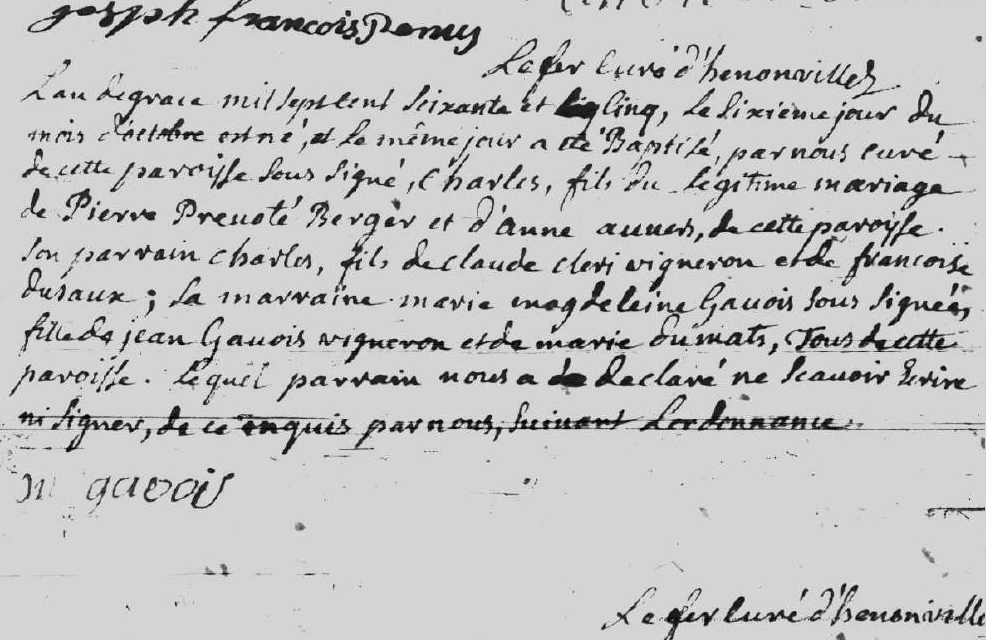 joseph francois Remy
Lefer Curé d'henonville
L'an de grace mil sept cent soixante et cinq, le sixieme jour du
mois d'octobre est né, et le même jour a eté Baptisé, par nous curé
de cette paroisse sous signé, Charles, fils du legitime mariage
de Pierre Prevoté Berger et d'anne auvers, de cette paroisse.
son parrain charles, fils de claude cleri vigneron et de francoise
dusaux; la marraine marie magdeleine Gavois sous signées,
fille de jean Gavois vigneron et de marie dumats, Tous de cette
paroisse. Lequel parrain nous a declaré ne scavoir Ecrire
ni signer, de ce enquis par nous, suivant Lordonnance.
m gavois
Lefer Curé d'henonville